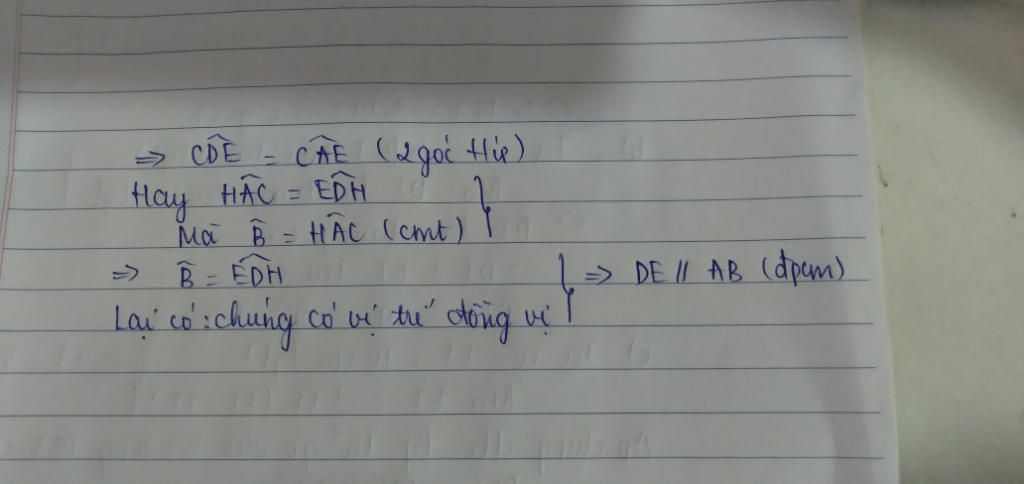 ⇒ CD̂E = CÂE (2 góc t/ứ)
Hay HÂC = ED̂H
Mà B̂ = HÂC (cmt)
⇒ B̂ = ED̂H
Lại có: chúng có vị trí đồng vị
} ⇒ DE // AB (đpcm)